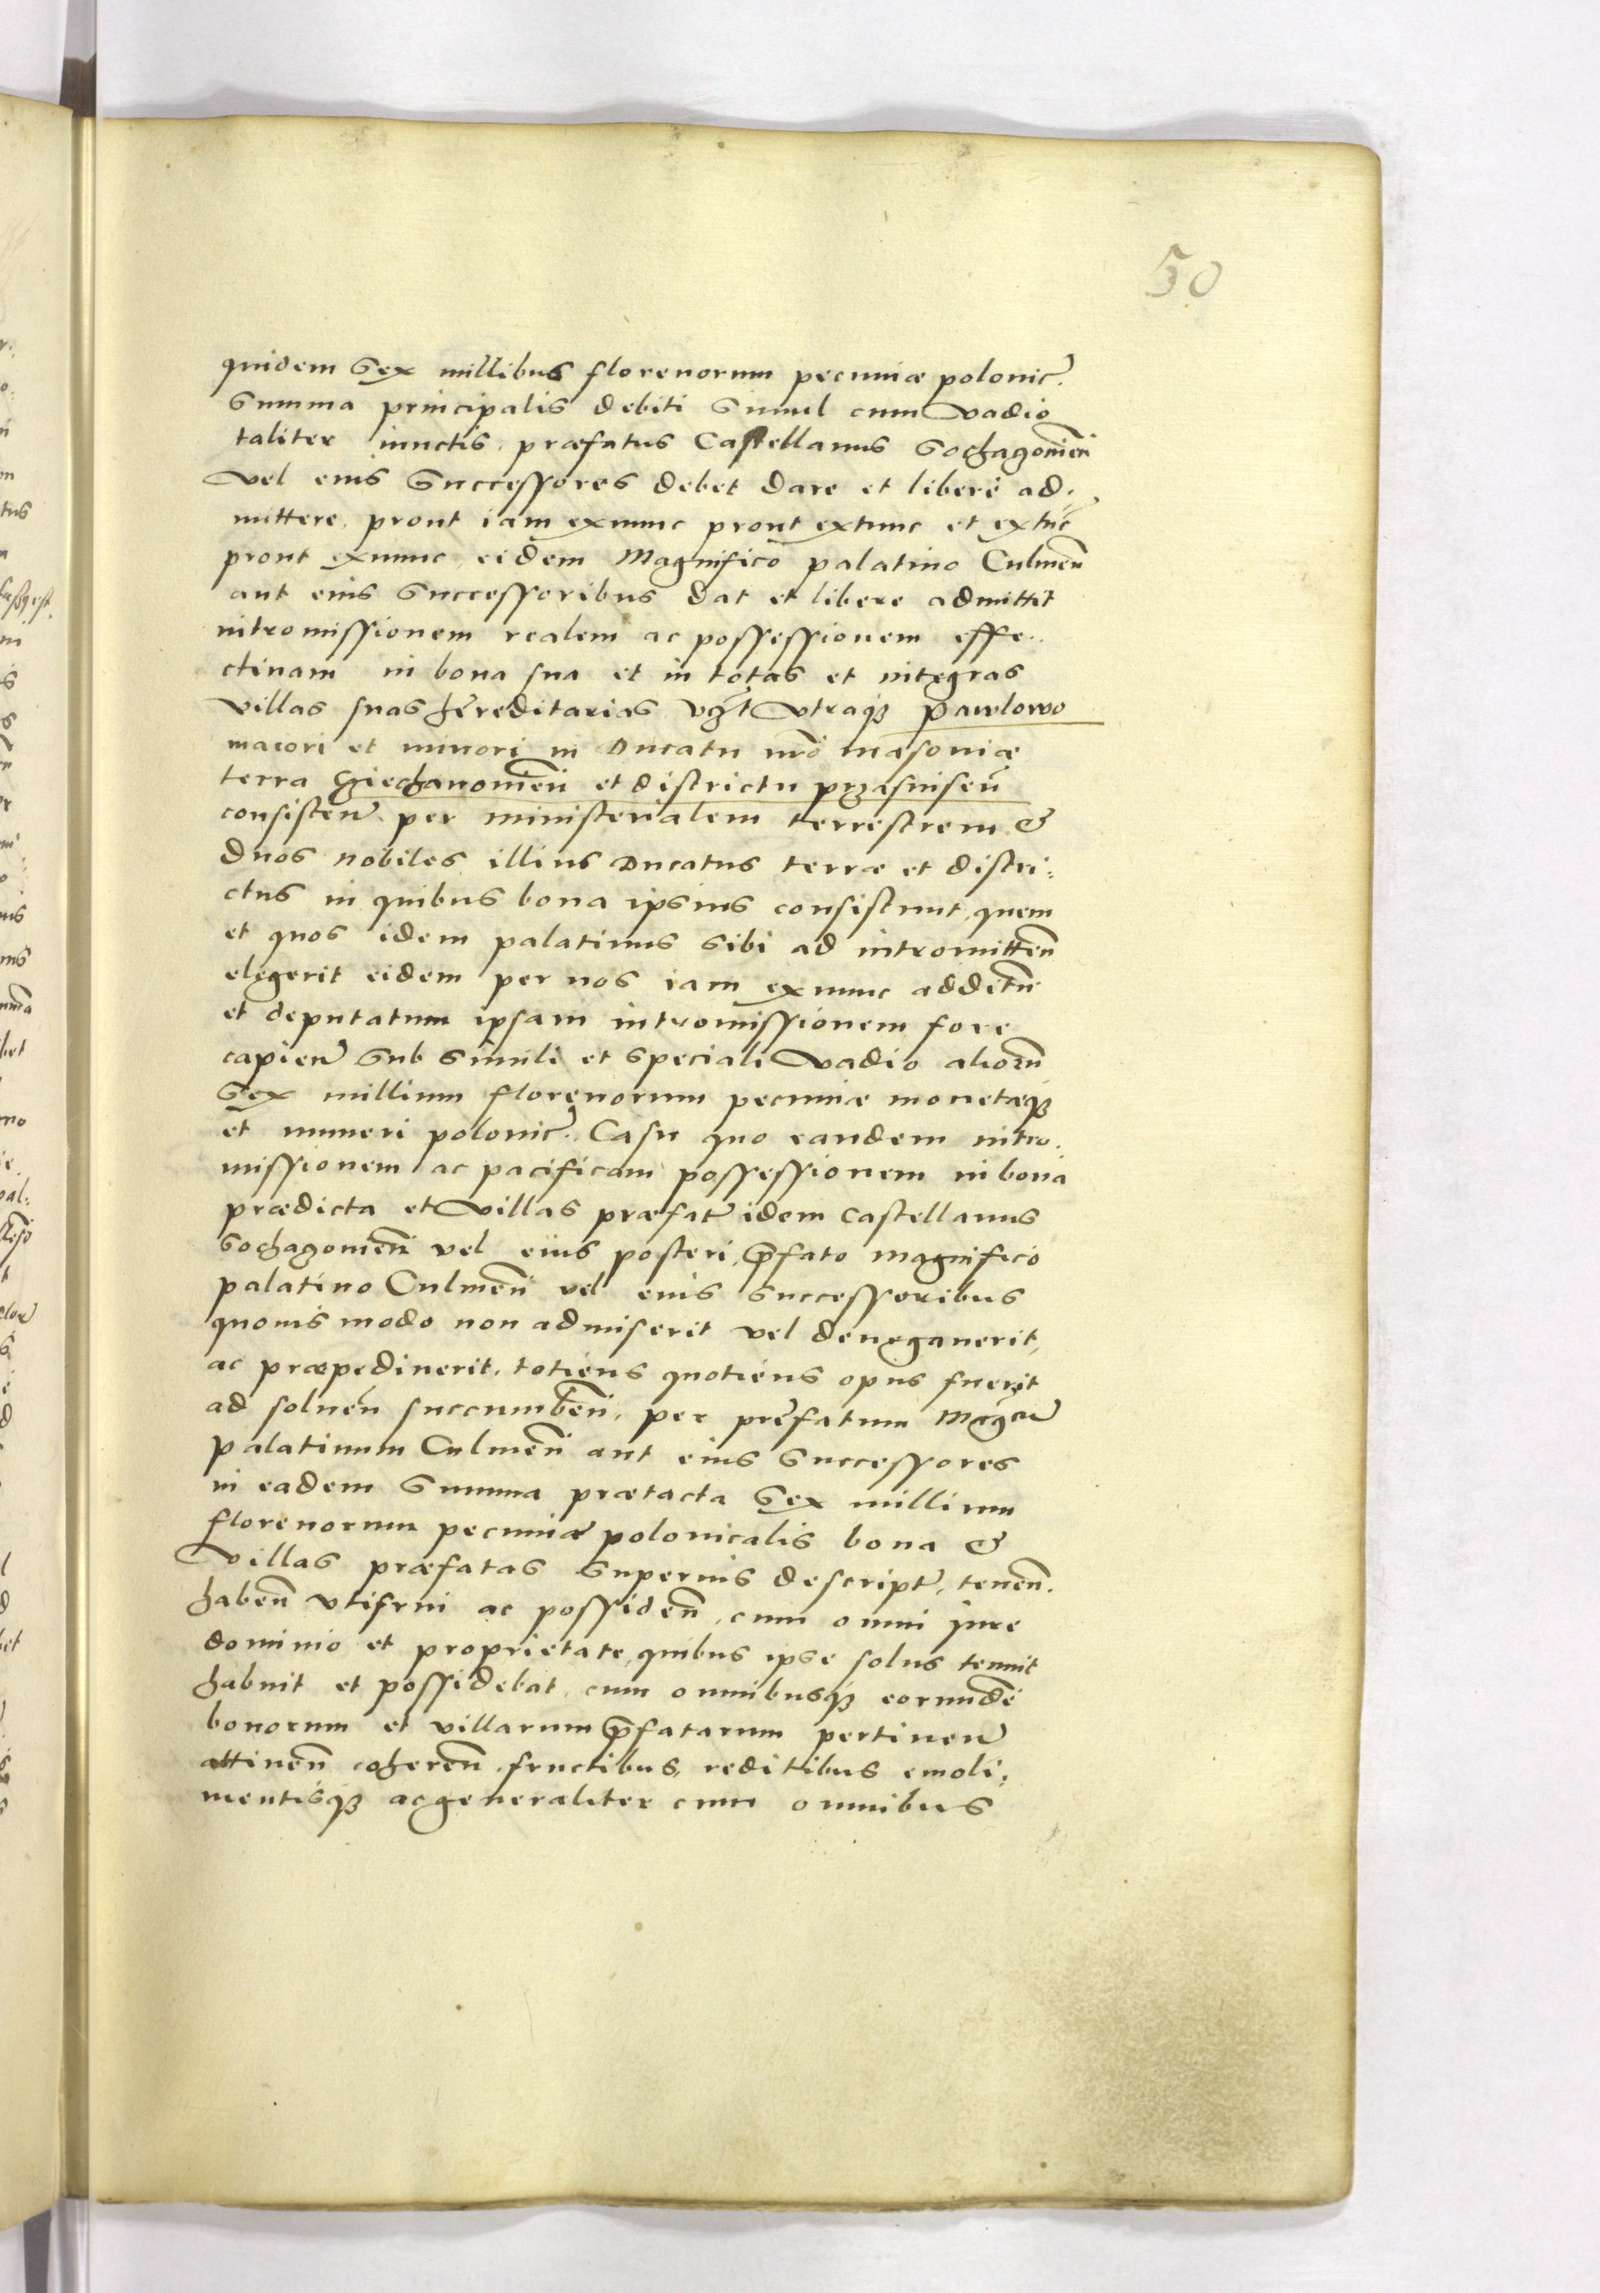 50
quidem Sex millibus florenorum pecuniæ polonic.
Summa principalis debiti Simul cum vadio
taliter iunctis, præfatus Castellanus Sochagovien̄
vel eius Successores debet dare et liberè ad,
mittere, prout iam exnunc prout extunc et extūc
prout exnunc eidem Magnifico palatino Culmen̄
aut eius Successoribus dat et libere admittit
intromissionem realem ac possessionem effe..
ctiuam in bona sua et in totas et integras
villas suas hęreditarias vʒt vtraqꝫ pawlowo
maiori et minori in Ducatu nr̄o masoviæ
terra Cziechanovien̄ et districtu przasnisen̄
consisten̄ per ministerialem terrestrem &
duos nobiles illius Ducatus terræ et distri,
ctus in quibus bona ipsius consistunt, quem
et quos idem palatinus sibi ad intromitten̄
elegerit eidem per nos iam ex nunc additū
et deputatum ipsam intromissionem fore
capien̄ Sub simili et speciali vadio aliorū
Sex millium florenorum pecuniæ monetæqꝫ
et numeri polonic. Casu quo eandem intro.
missionem ac pacificam possessionem in bona
prædicta et villas præfat̄ idem Castellanus
Sochagovien̄ vel eius posteri, p̄fato magnifico
palatino Culmen̄ vel eius successoribus
quouis modo non admiserit vel denegauerit,
ac præpediuerit, totiens quotiens opus fuerit
ad soluen̄ succumben̄, per prefatum Mag͞cu
palatinum Culmen̄ aut eius successores
in eadem Summa prætacta Sex millium
florenorum pecuniæ polonicalis bona &
villas præfatas superius descript̄, tenen̄.
haben̄ vtifrui ac possiden̄, cum omni iure
dominio et proprietate, quibus ipse solus tenuit
habuit et possidebat, cum omnibusqꝫ eorundē
bonorum et villarum p̄fatarum pertinen̄
attinen̄ coheren̄ fructibus, reditibus emoli,
mentisqꝫ ac generaliter cum omnibus